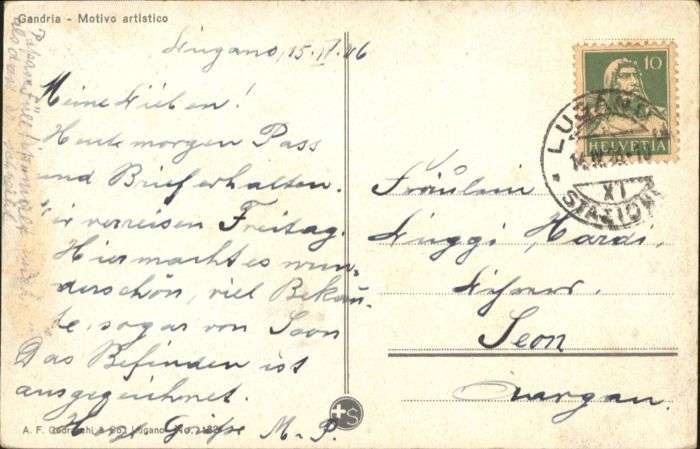 Gandria - Motivo artistico
Lugano, 15. IV.
Meine Lieben!
Heute morgen Pass
und Brief erhalten.
Wir verreisen Freitag.
Hier macht es wun-
derschön, viel Bekann-
te, sogar von Seon
Das Befinden ist
ausgezeichnet.
Herzl. Grüsse M.-P.
A. F. Lugano No.
10
HELVETIA
LUGANO
XI
STAZIONE
Fräulein
Luggi
Lehrers.
Seon
Aargau.
S